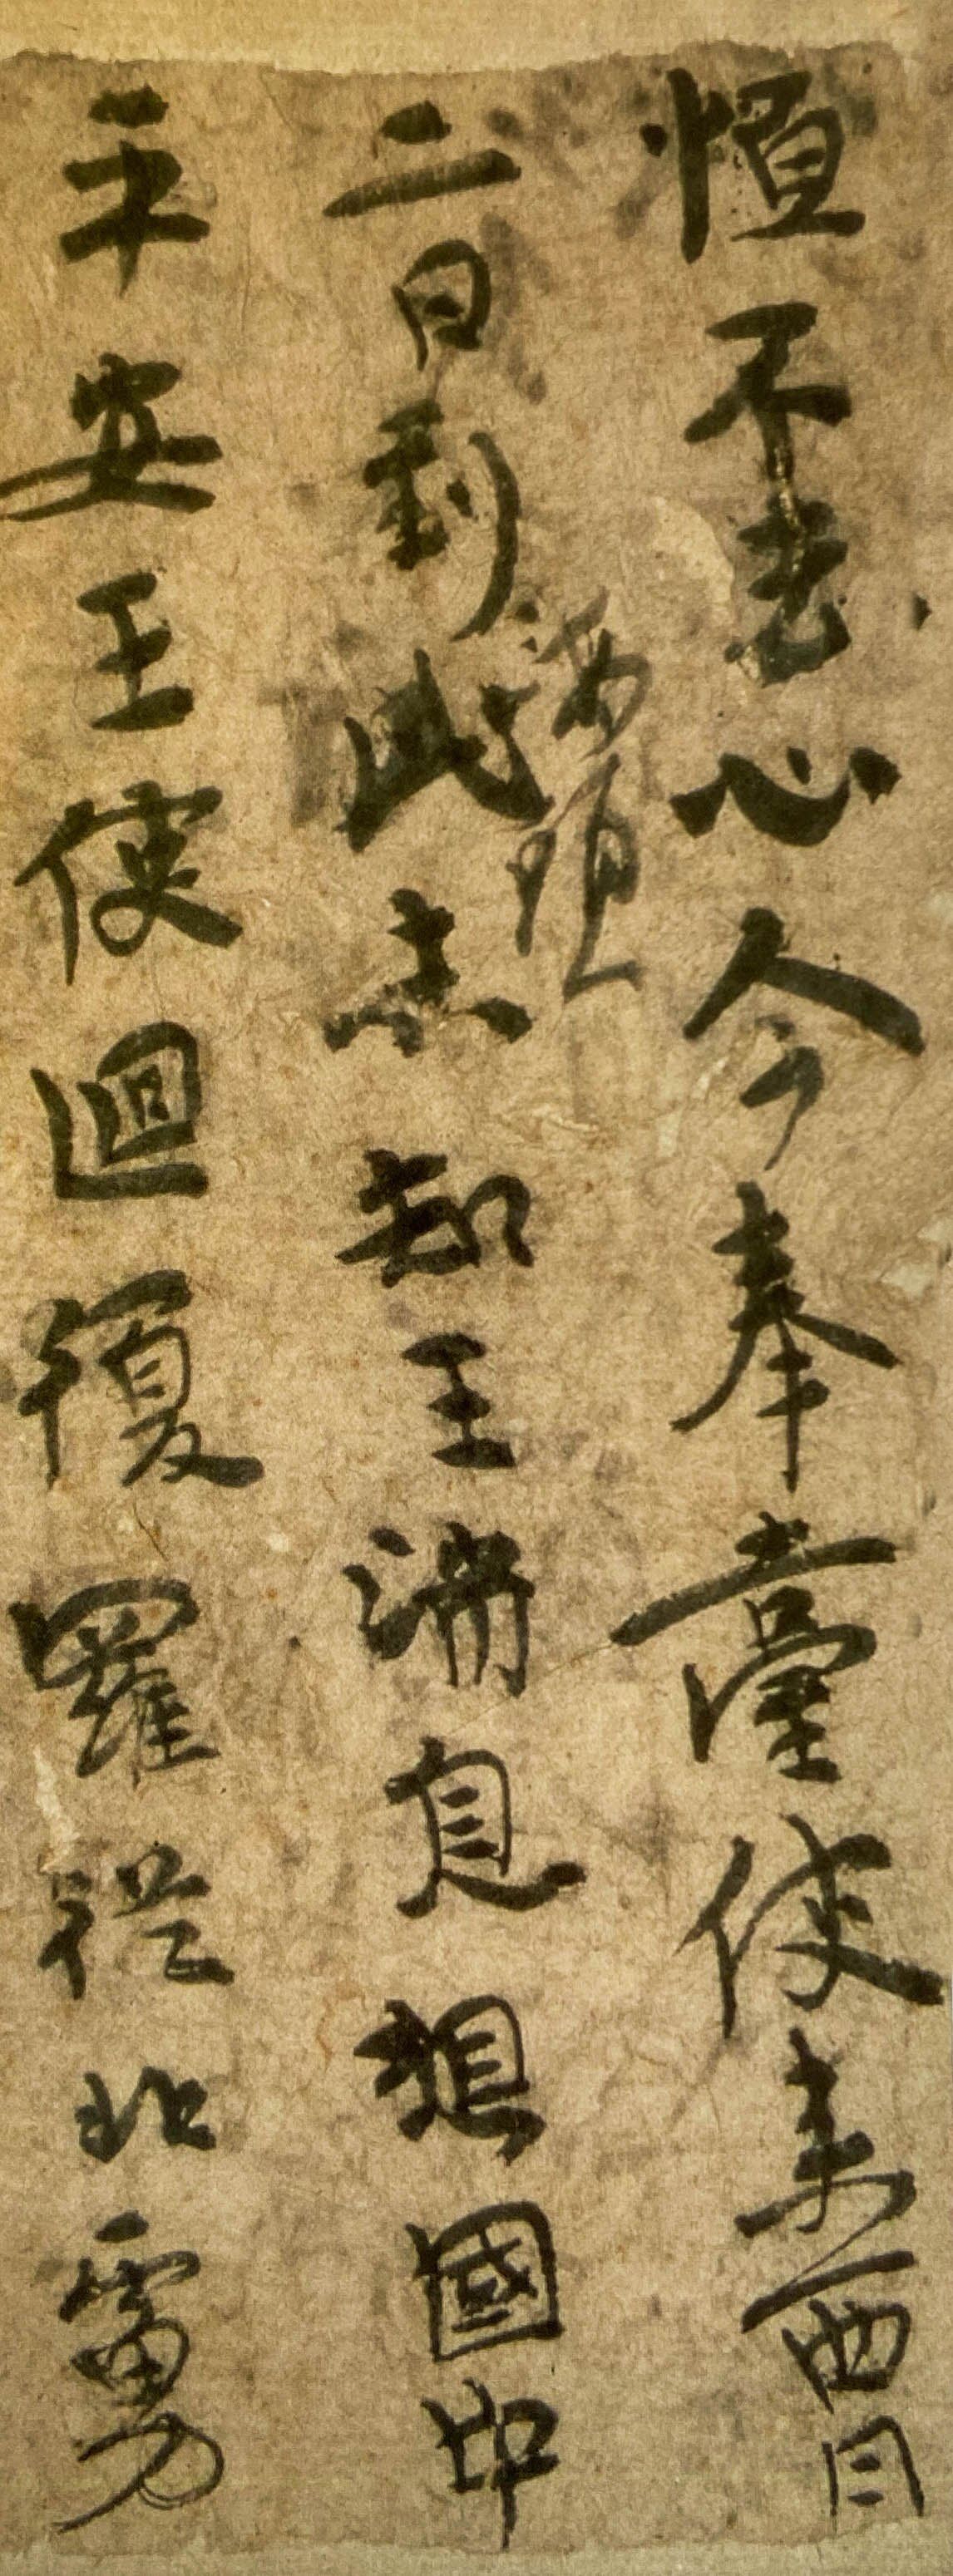 恒不去心今奉臺使来西月
海頭
二日到此未知王消息想國中
平安王使迴復羅從北虜